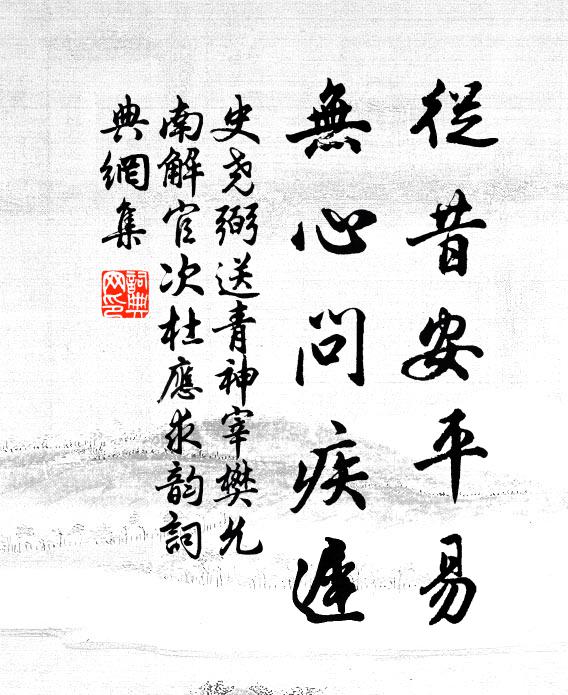 從昔安平易
無心問疾遲
史堯弼送青神宰樊允
南解官次杜應求韵詞
典網集
詞典網印